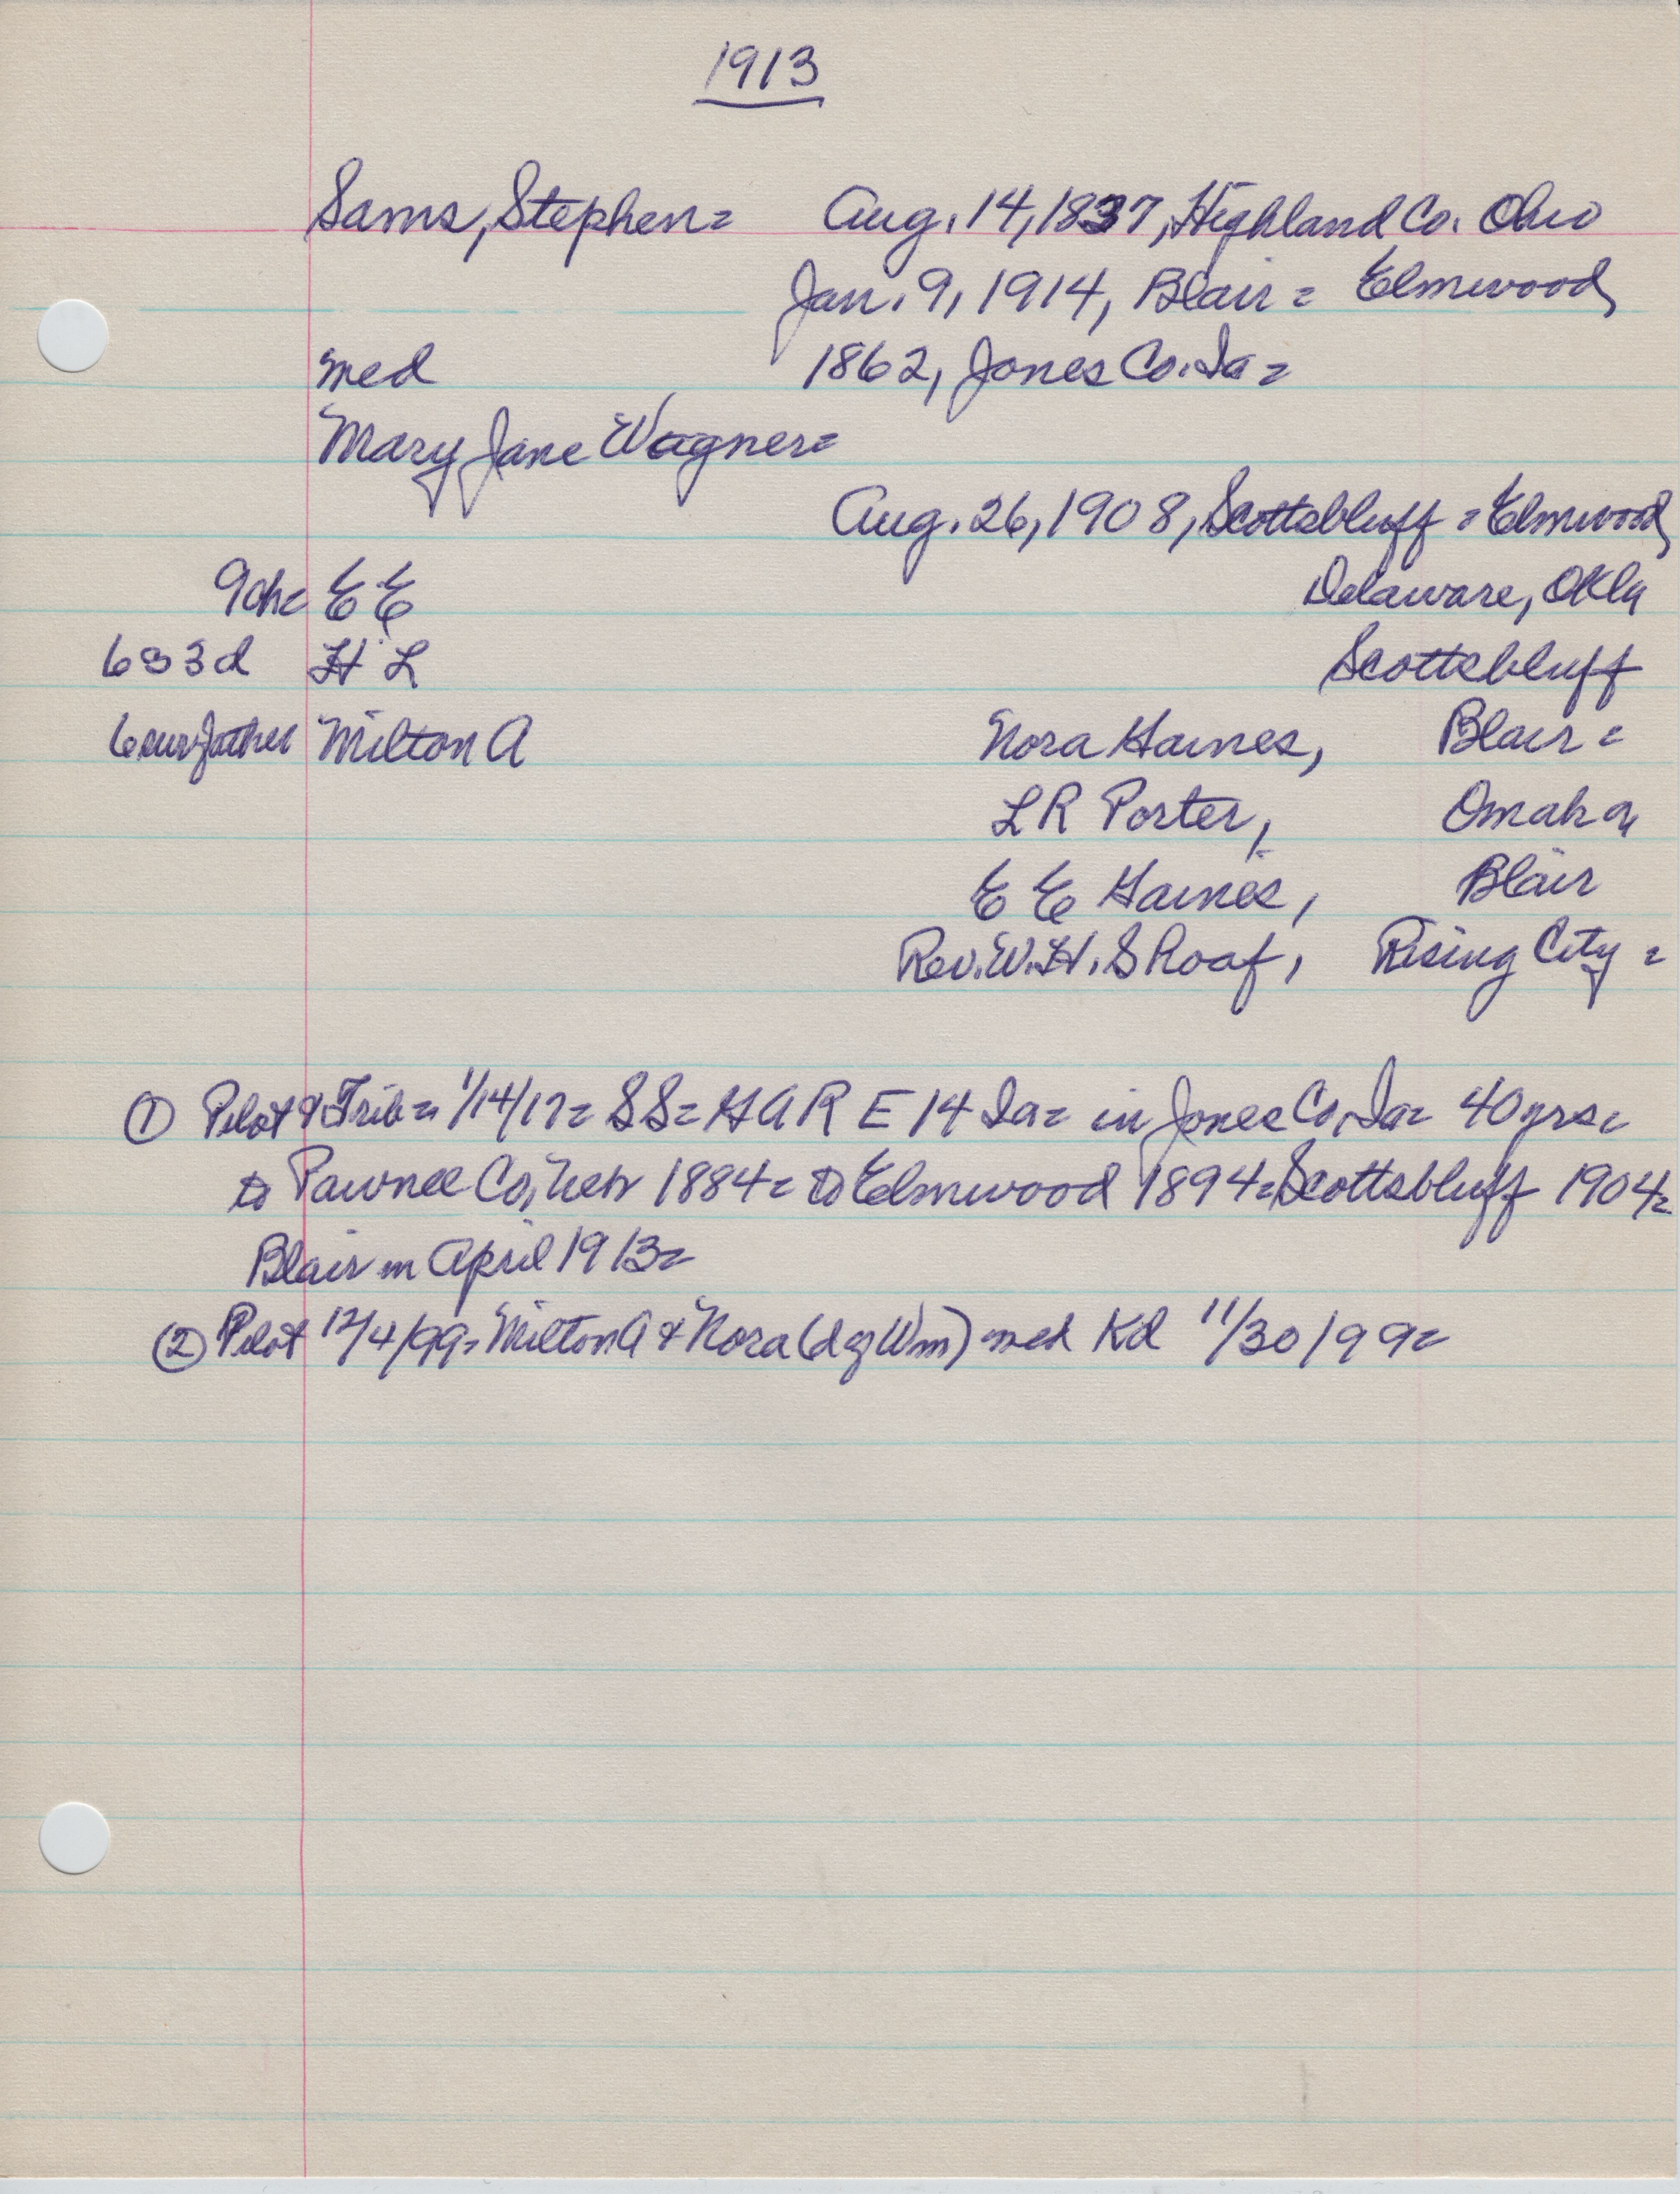 1913
Sams, Stephen= Aug. 14, 1837, Highland Co. Ohio
Jan. 9, 1914, Blair = Elmwood
med 1862, Jones Co. Ia =
Mary Jane Wagner=
Aug. 26, 1908, Scottsbluff = Elmwood
9ch= E E Delaware, Okla
6s 3d H L Scottsbluff
6 surv father Milton A Nora Haines, Blair =
L R Porter, Omaha
E E Haines, Blair
Rev. W. H. Shoaf, Rising City =
① Pilot & Trib= 1/14/17= SS= G A R E 14 Ia= in Jones Co, Ia= 40 yrs=
to Pawnee Co, Neb 1884= to Elmwood 1894= Scottsbluff 1904=
Blair in April 1913=
② Pilot 12/4/99= Milton A & Nora (d of Wm) med Kd 11/30/99=